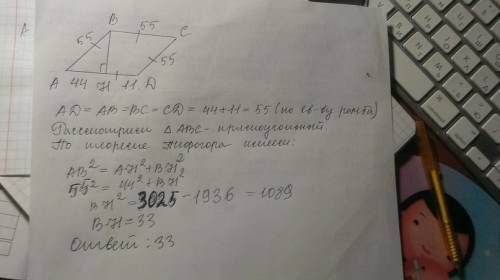 B
55
C
55
55
A 44 H 11 D
AD = AB = BC = CD = 44+11 = 55 (по св-ву ромба)
Рассмотрим △ABC - прямоугольный
По теореме Пифагора имеем:
AB² = AH² + BH²
55² = 44² + BH²
BH² = 3025 - 1936 = 1089
BH = 33
Ответ: 33